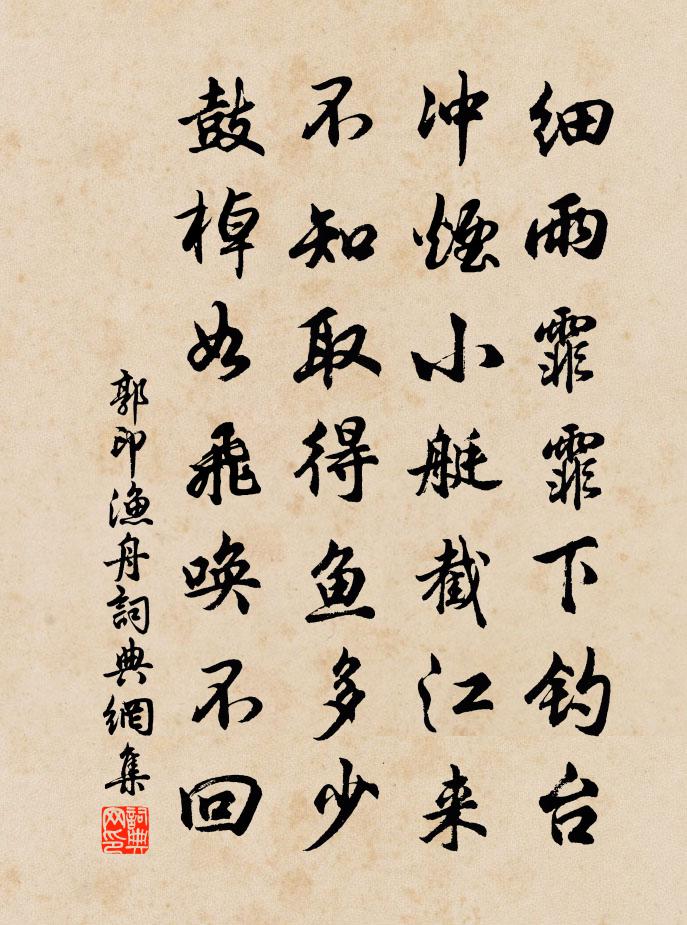 细雨霏霏下钓台
冲煙小艇截江来
不知取得鱼多少
鼓棹如飛唤不回
郭印漁舟詞典網集
詞典网印